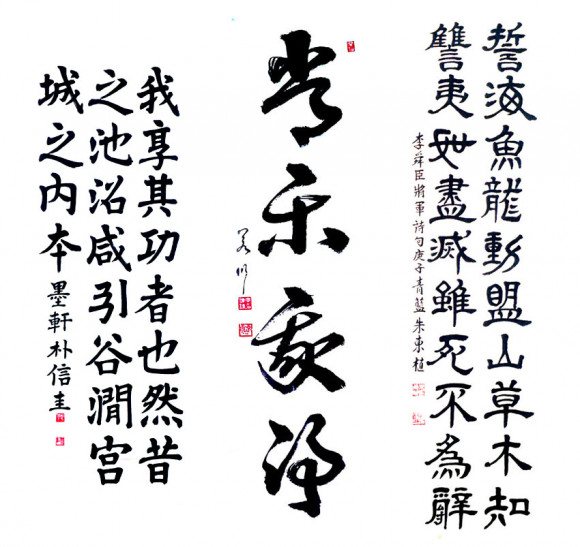 誓海魚龍動盟山草木知
讐夷如盡滅雖死不爲辭
李舜臣將軍詩句庚子青藍朱東植
常樂我淨
我享其功者也然昔
之池沼咸引谷澗宮
城之内本墨軒朴信圭